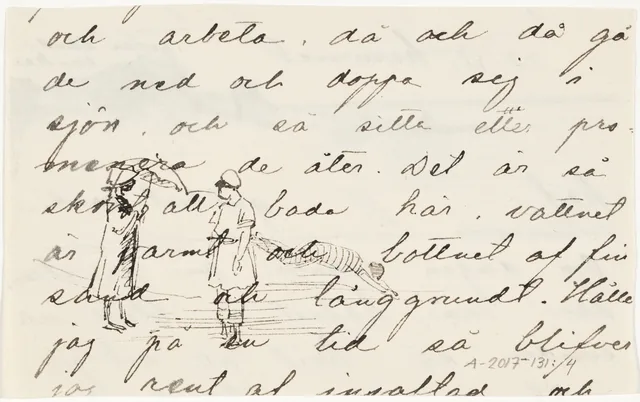 och arbeta, då och då gå
de ned och doppa sig i
sjön, och så sitta eller pro-
menera de åter. Det är så
skönt att bada här, vattnet
är varmt och bottnet af fin
sand och långgrundt. Håller
jag på en tid så blifver
jag rent af insaltad och
A-2017-131:/4